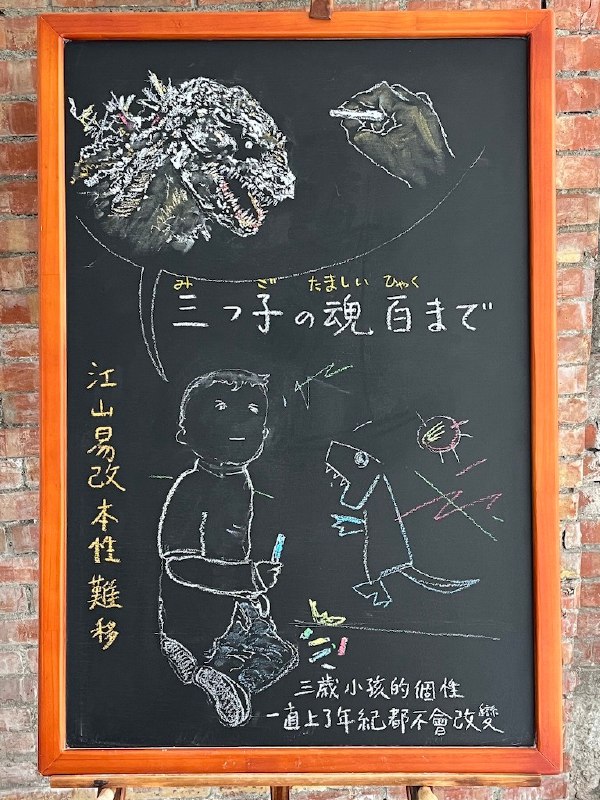 み ご たましい ひゃく
三つ子の魂百まで
江山易改本性難移
三歳小孩的個性
一直上了年紀都不會改變